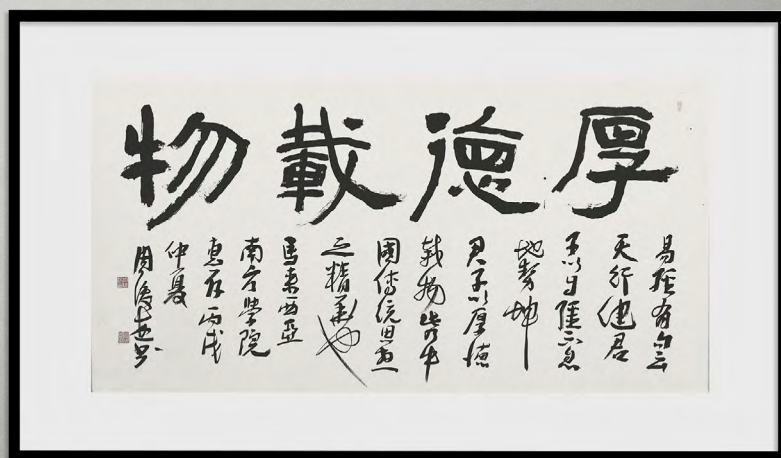 厚德載物
易經有句云
天行健君
子以自強不息
地勢坤
君子以厚德
載物皆中
國傳統思想
之精華也
馬來西亞
南方學院
惠存丙戌
仲夏
周俊杰书